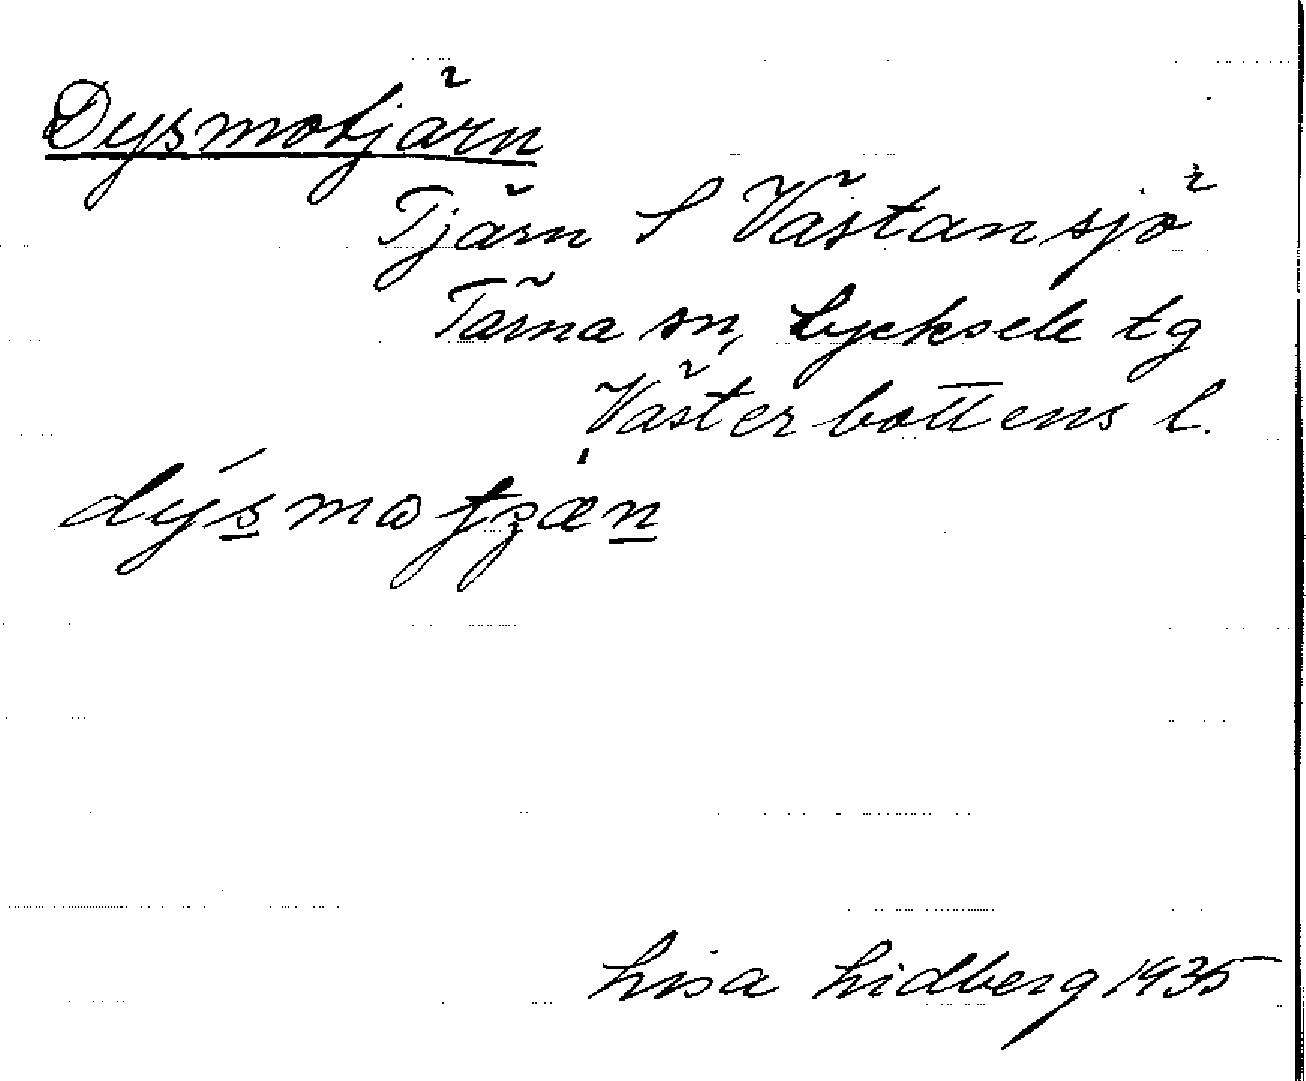 Dysmotjärn
Tjärn S Västansjö
Tärna sn, Lycksele tg
Västerbottens l.
dýsmotjæn
Lisa Lidberg 1935